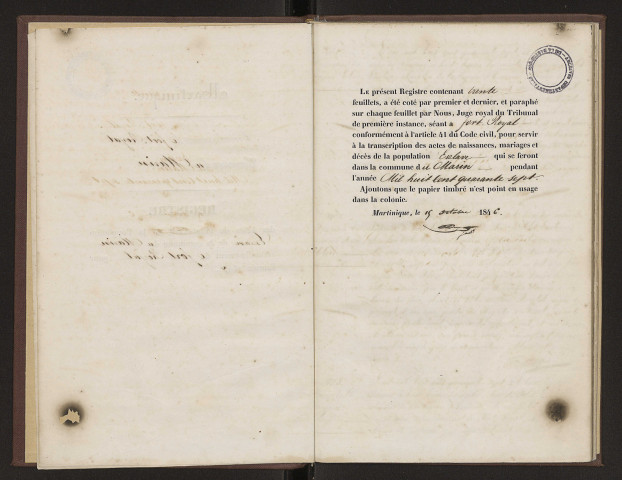 LE présent Registre contenant trente
feuillets, a été coté par premier et dernier, et paraphé
sur chaque feuillet par Nous, Juge royal du Tribunal
de première instance, séant a fort Royal
conformément à l'article 41 du Code civil, pour servir
à la transcription des actes de naissances, mariages et
décès de la population Esclave qui se feront
dans la commune du Marin pendant
l'année Mil huit Cent quarante sept.
Ajoutons que le papier timbré n'est point en usage
dans la colonie.
Martinique, le 15 octobre 1846.